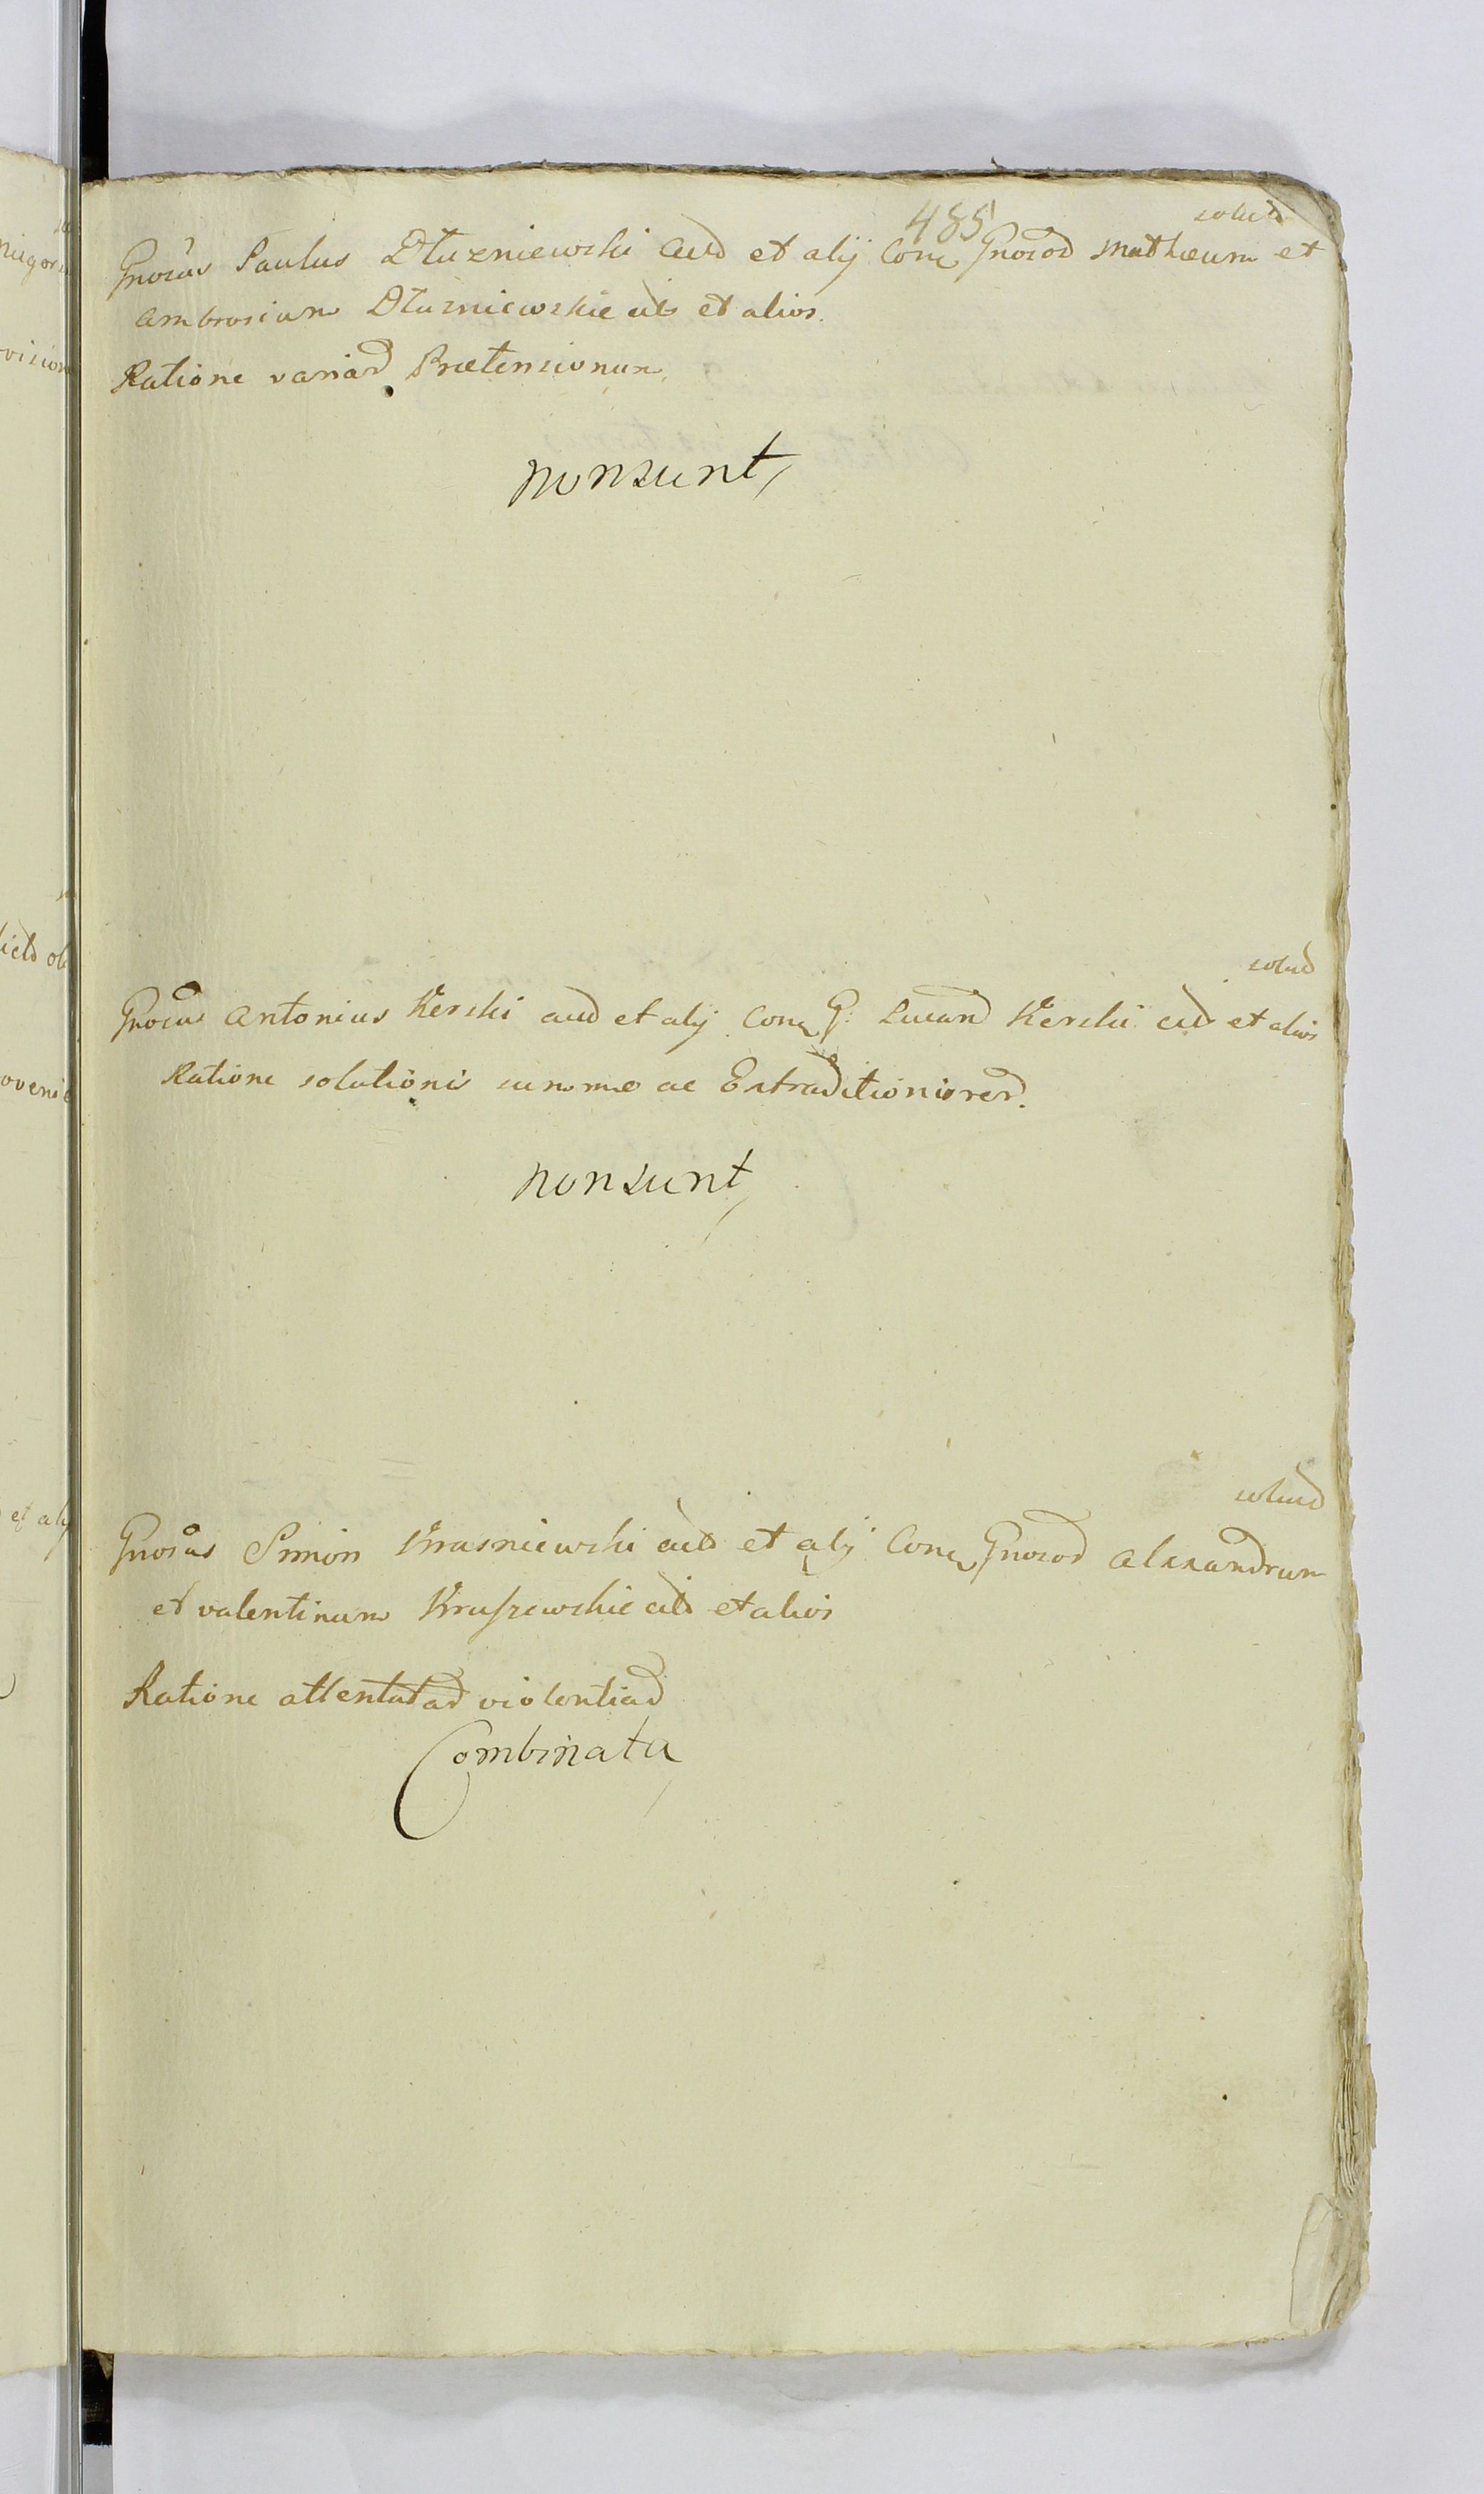 485
solud
Gnosus Paulus Dłuzniewski aud et alij Conq Gnosod Mathæum et
Ambrosium Dłuzniewskie aud et alios.
Ratione variad Prætensionum
non sunt
solud
Gnosus Antonius Kerski aud et alij Conq G: Lucam Kerski aud et alios
Ratione solutionis summæ ac Extraditionis rerd.
non sunt
solud
Gnosus Simon Krasniewski aud et alij Conq Gnosod Alexandrum
et Valentinum Kruszewskie aud et alios
Ratione attentatad violentiad
Combinata